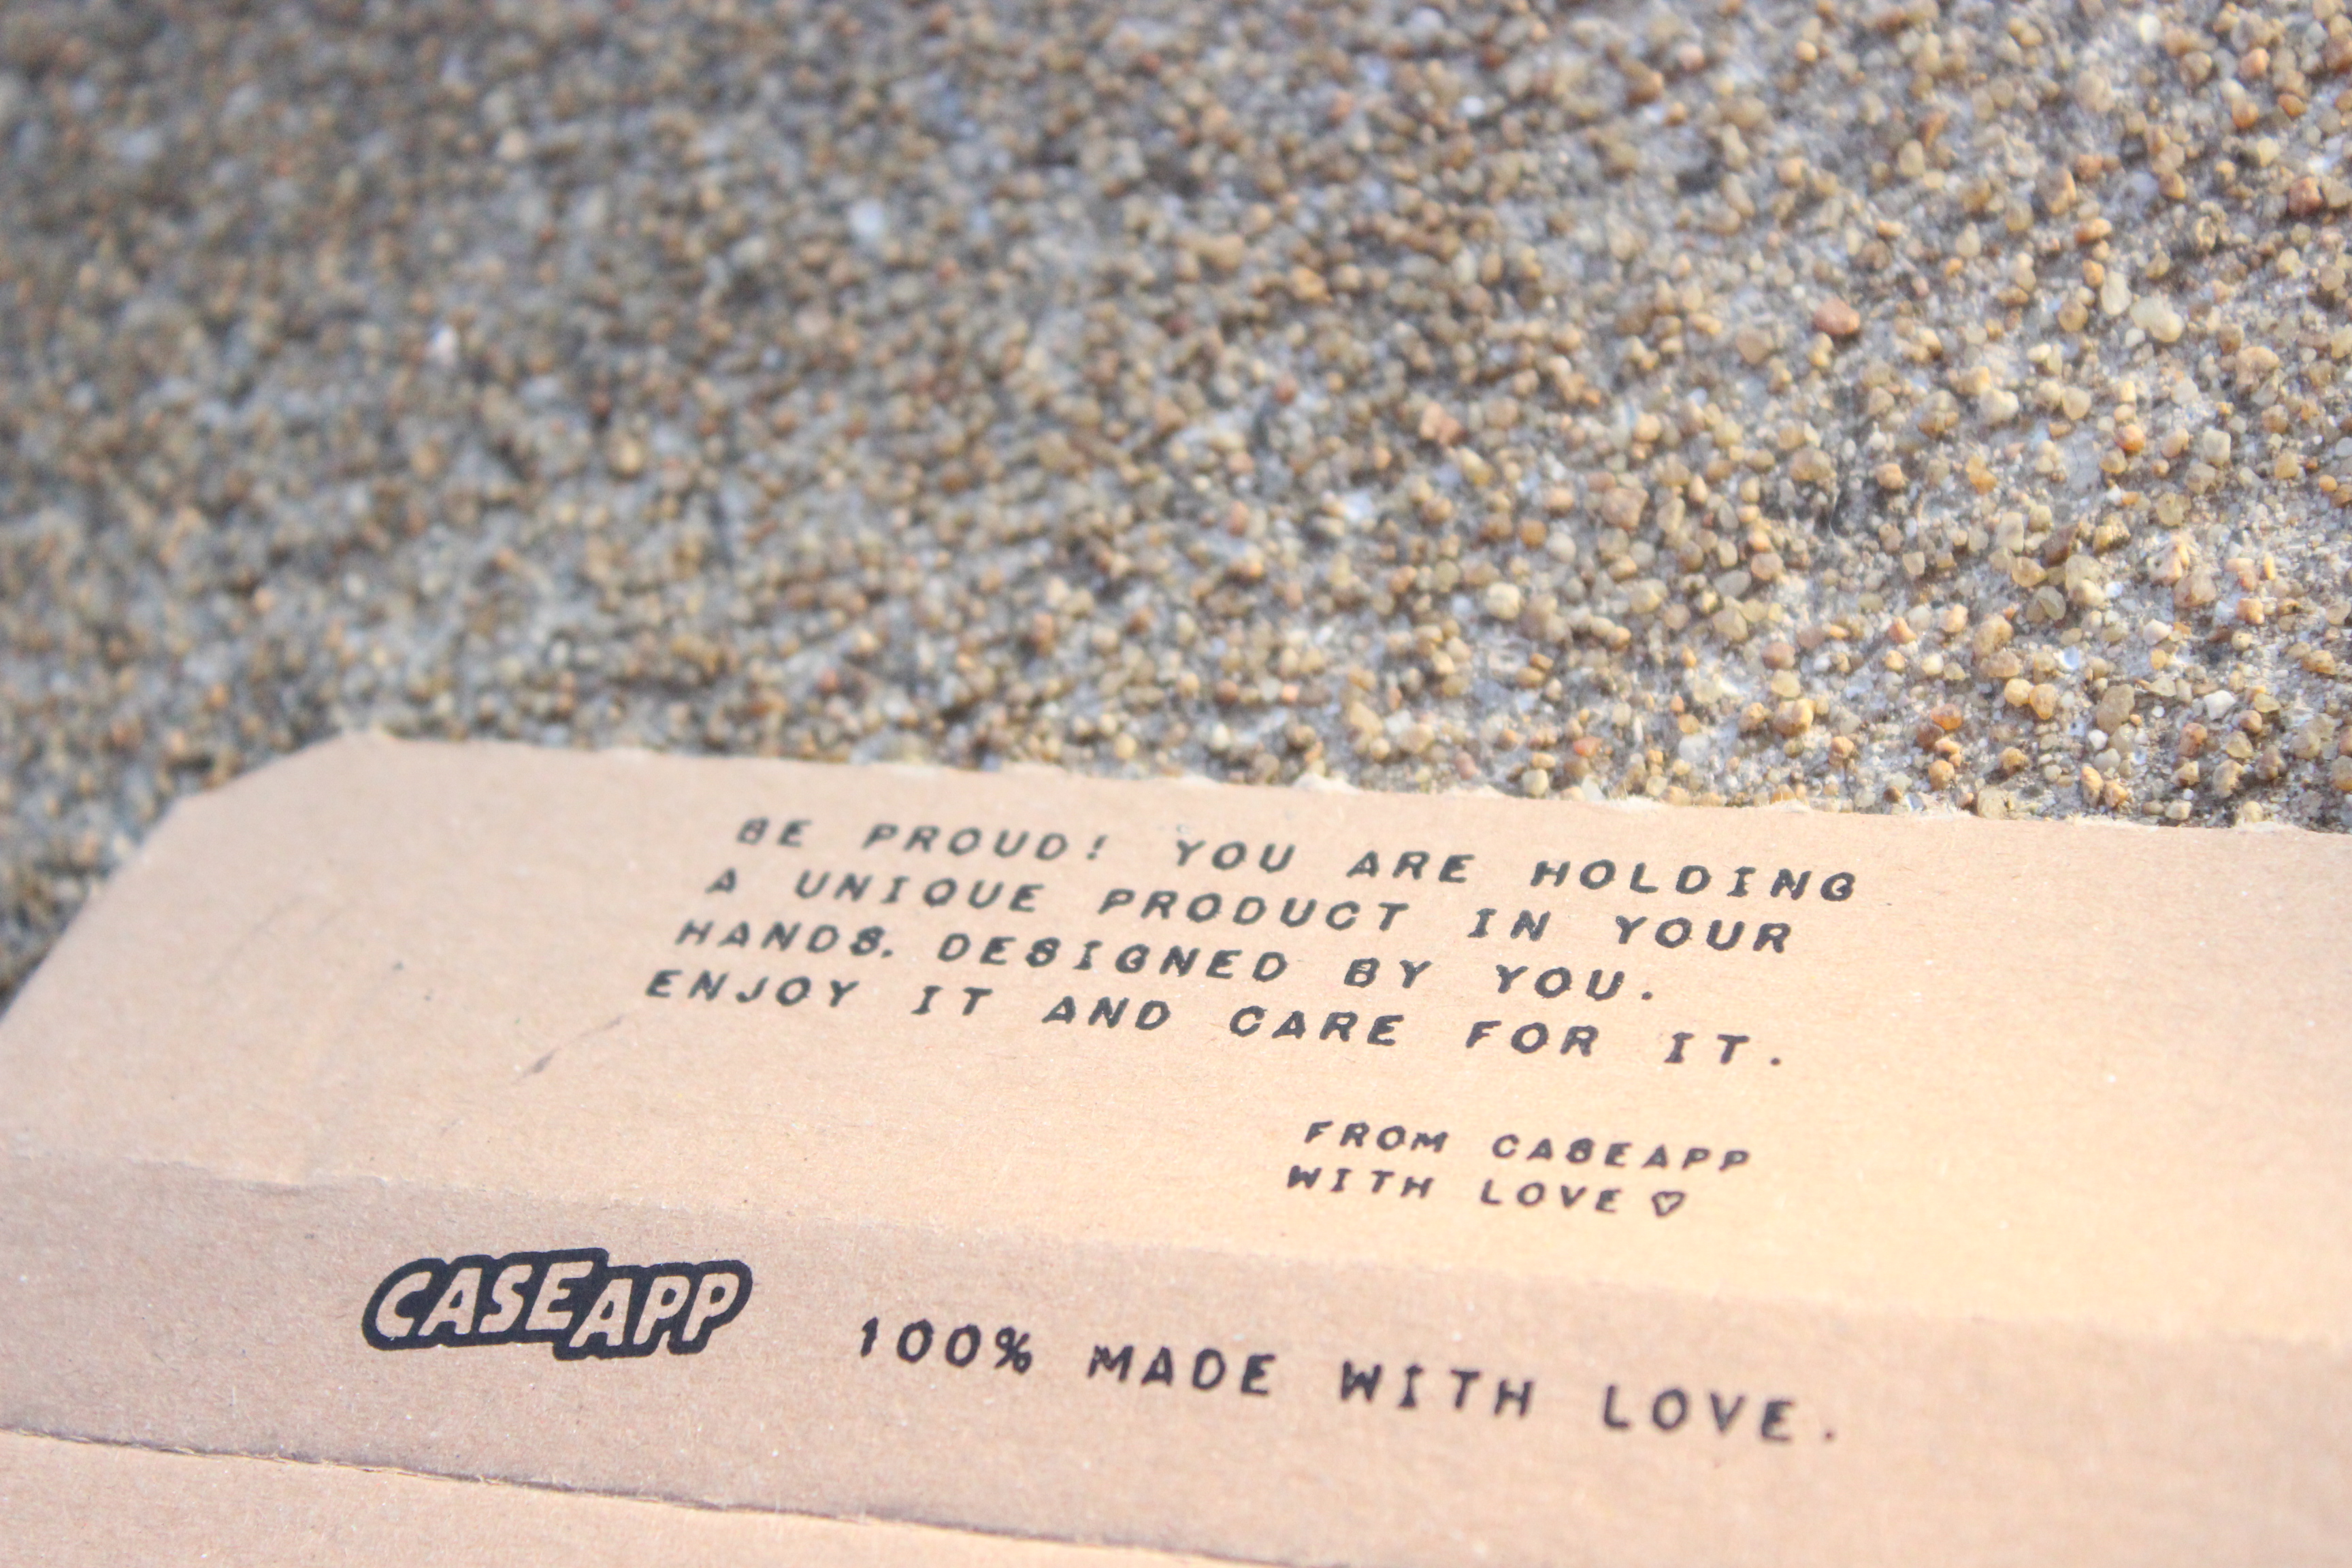 BE PROUD! YOU ARE HOLDING
A UNIQUE PRODUCT IN YOUR
HANDS. DESIGNED BY YOU.
ENJOY IT AND CARE FOR IT.
FROM CASEAPP
WITH LOVE ♡
CASEAPP
100% MADE WITH LOVE.